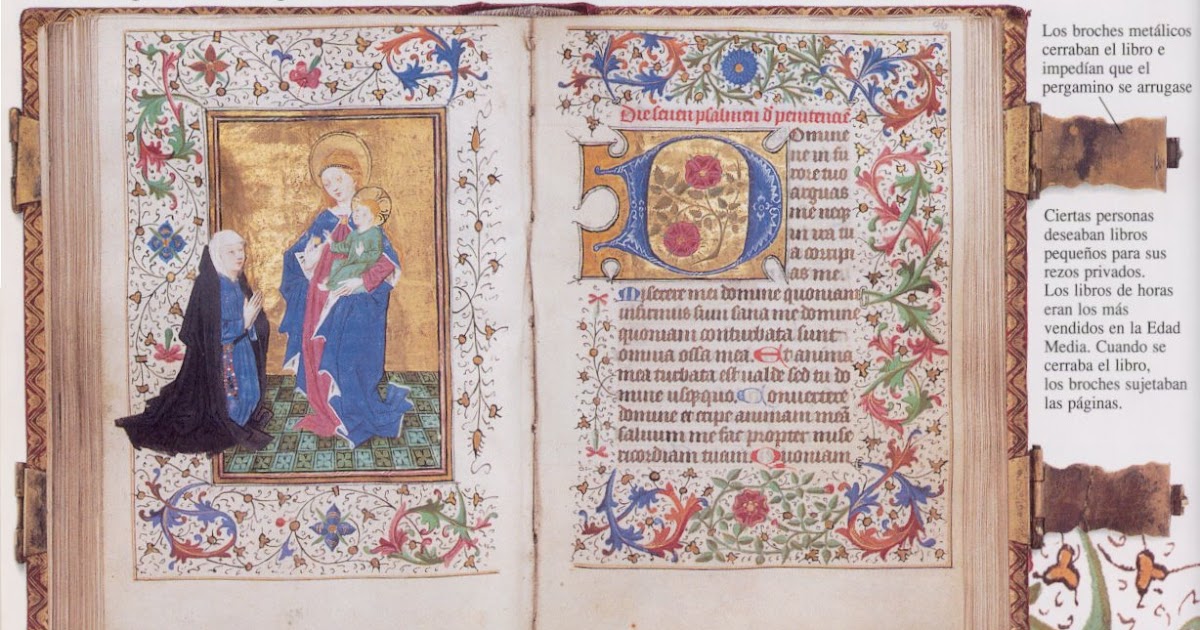 Die seuen psalmen d penitencie
Domine
ne in fu
rore tuo
arguas
me neqz
in ira tu
a corripi
as me.
Miserere mei domine quoniam
infirmus sum sana me domine
quoniam conturbata sunt
omnia ossa mea. Et anima
mea turbata est ualde sed tu do
mine usqzquo. Conuertere
domine et eripe animam meā
saluum me fac propter mise
ricordiam tuam Quoniam
Los broches metálicos
cerraban el libro e
impedían que el
pergamino se arrugase
Ciertas personas
deseaban libros
pequeños para sus
rezos privados.
Los libros de horas
eran los más
vendidos en la Edad
Media. Cuando se
cerraba el libro,
los broches sujetaban
las páginas.